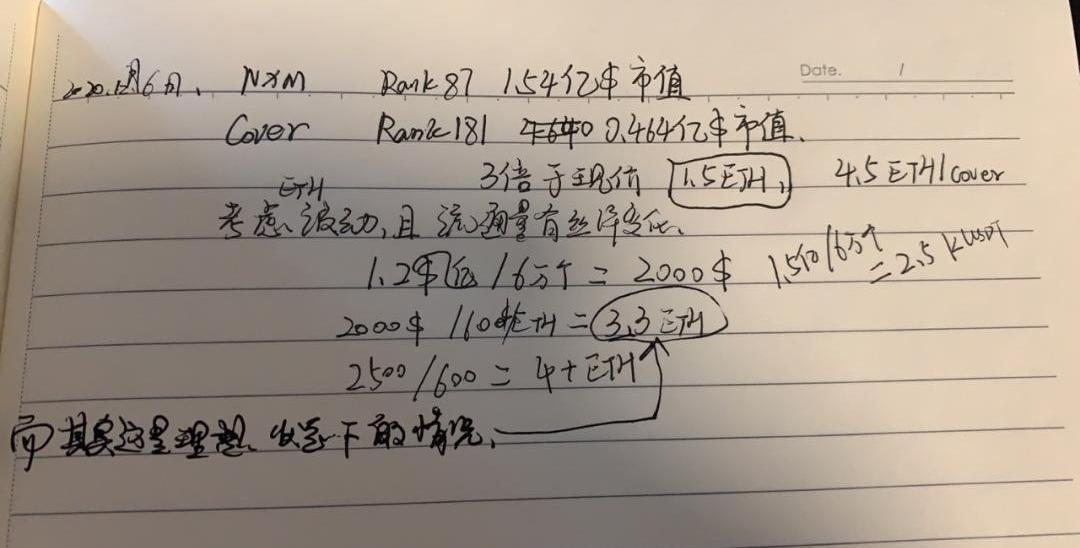 Date. /
2020.12月6日、 NXM Rank 87 1.54亿$ 市值
Cover Rank 181 0.464亿$ 市值.
3倍于现价 1.5ETH. 4.5 ETH/cover
考虑ETH波动,且流通量有些许变化.
1.2$亿/6万个 = 2000$ 1.5亿/6万个 = 2.5 k USDT
2000$ /600$/ETH = 3.3 ETH
2500/600 = 4+ ETH
而其实这是理想 下的情况.